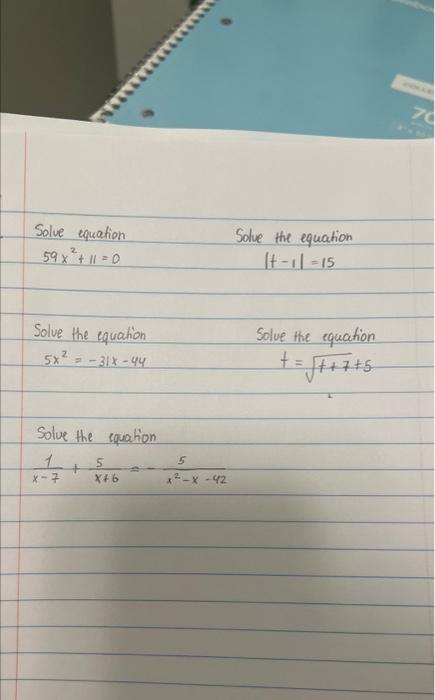 70
Solve equation
59x² + 11 = 0
Solve the equation
|t - 1| = 15
Solve the equation
5x² = -31x - 44
Solve the equation
t = √(t + 7) + 5
Solve the equation
1/(x - 7) + 5/(x + 6) = - 5/(x² - x - 42)